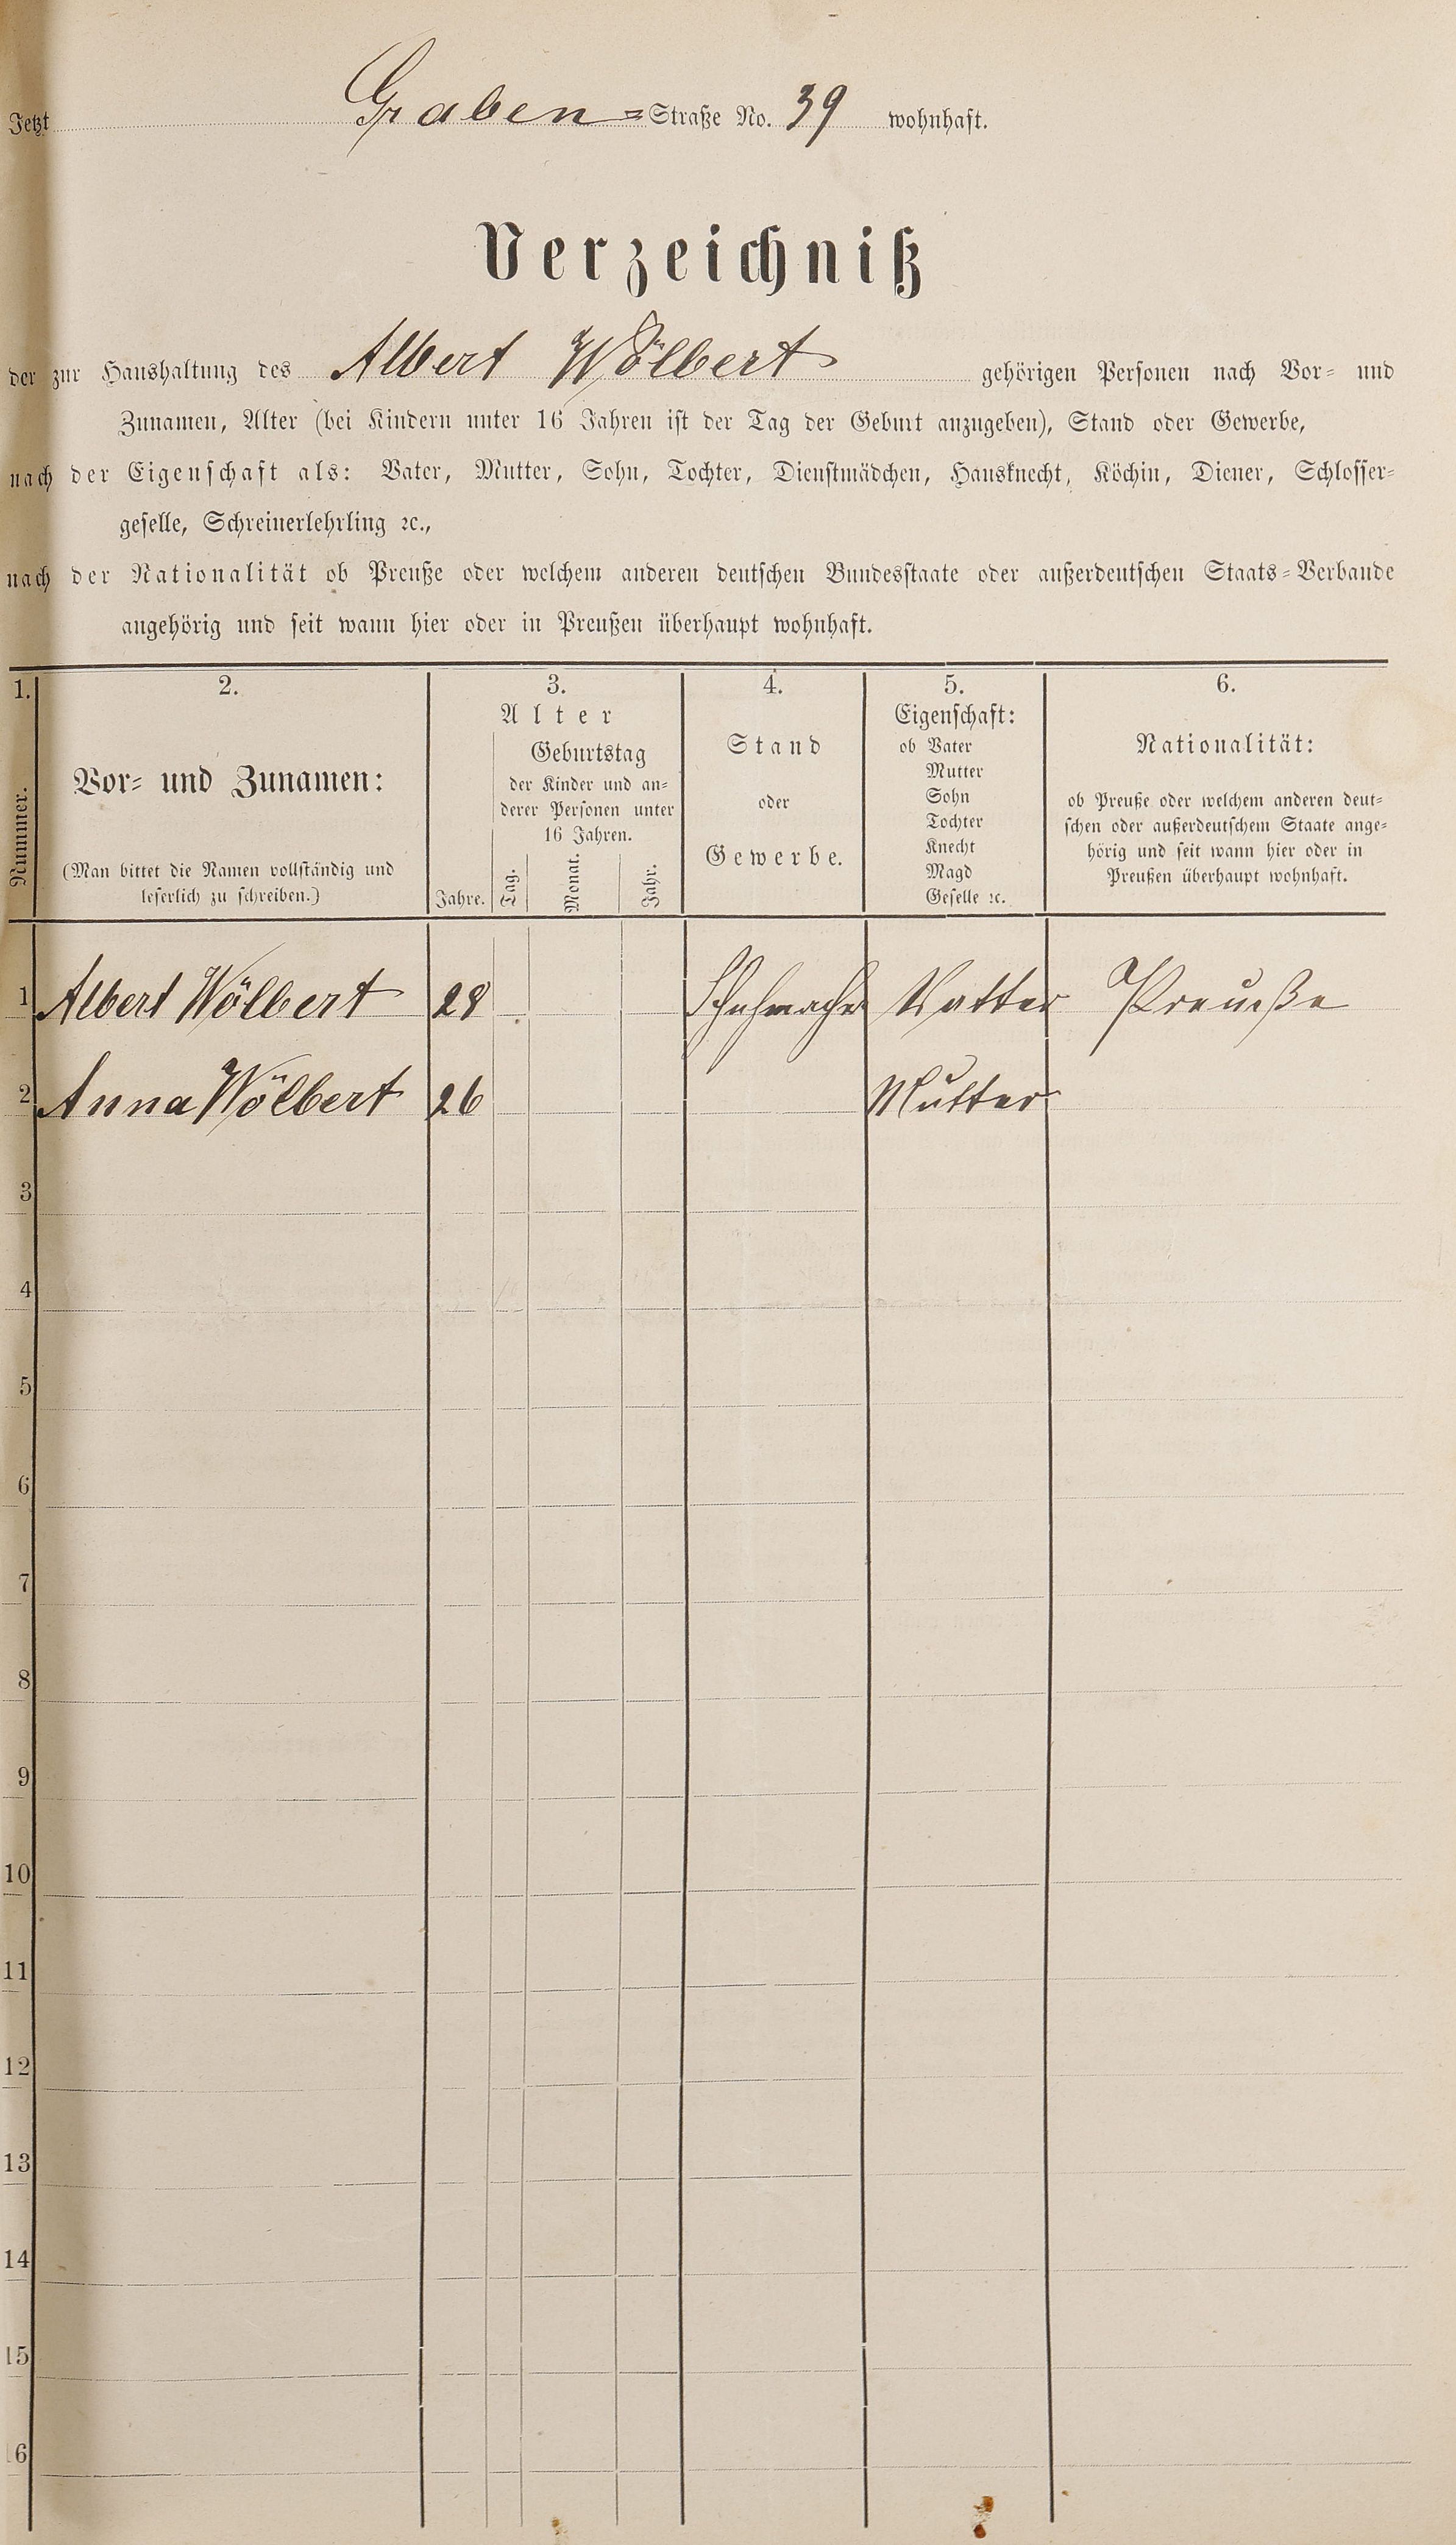 Jetzt Graben=Straße No. 39 wohnhaft.
Verzeichniß
der zur Haushaltung des Albert Wölbert gehörigen Personen nach Vor= und
Zunamen, Alter (bei Kindern unter 16 Jahren ist der Tag der Geburt anzugeben), Stand oder Gewerbe,
nach der Eigenschaft als: Vater, Mutter, Sohn, Tochter, Dienstmädchen, Hausknecht, Köchin, Diener, Schlosser=
geselle, Schreinerlehrling ꝛc.,
nach der Nationalität ob Preuße oder welchem anderen deutschen Bundesstaate oder außerdeutschen Staats=Verbande
angehörig und seit wann hier oder in Preußen überhaupt wohnhaft.
1.
Nummer.
2.
Vor= und Zunamen:
(Man bittet die Namen vollständig und
leserlich zu schreiben.)
3.
Alter
Jahre.
Geburtstag
der Kinder und an=
derer Personen unter
16 Jahren.
Tag.
Monat.
Jahr.
4.
Stand
oder
Gewerbe.
5.
Eigenschaft:
ob Vater
Mutter
Sohn
Tochter
Knecht
Magd
Geselle ꝛc.
6.
Nationalität:
ob Preuße oder welchem anderen deut=
schen oder außerdeutschem Staate ange=
hörig und seit wann hier oder in
Preußen überhaupt wohnhaft.
1 Albert Wölbert 28 Schuhmacher Vatter Preuße
2 Anna Wölbert 26 Mutter
3
4
5
6
7
8
9
10
11
12
13
14
15
16